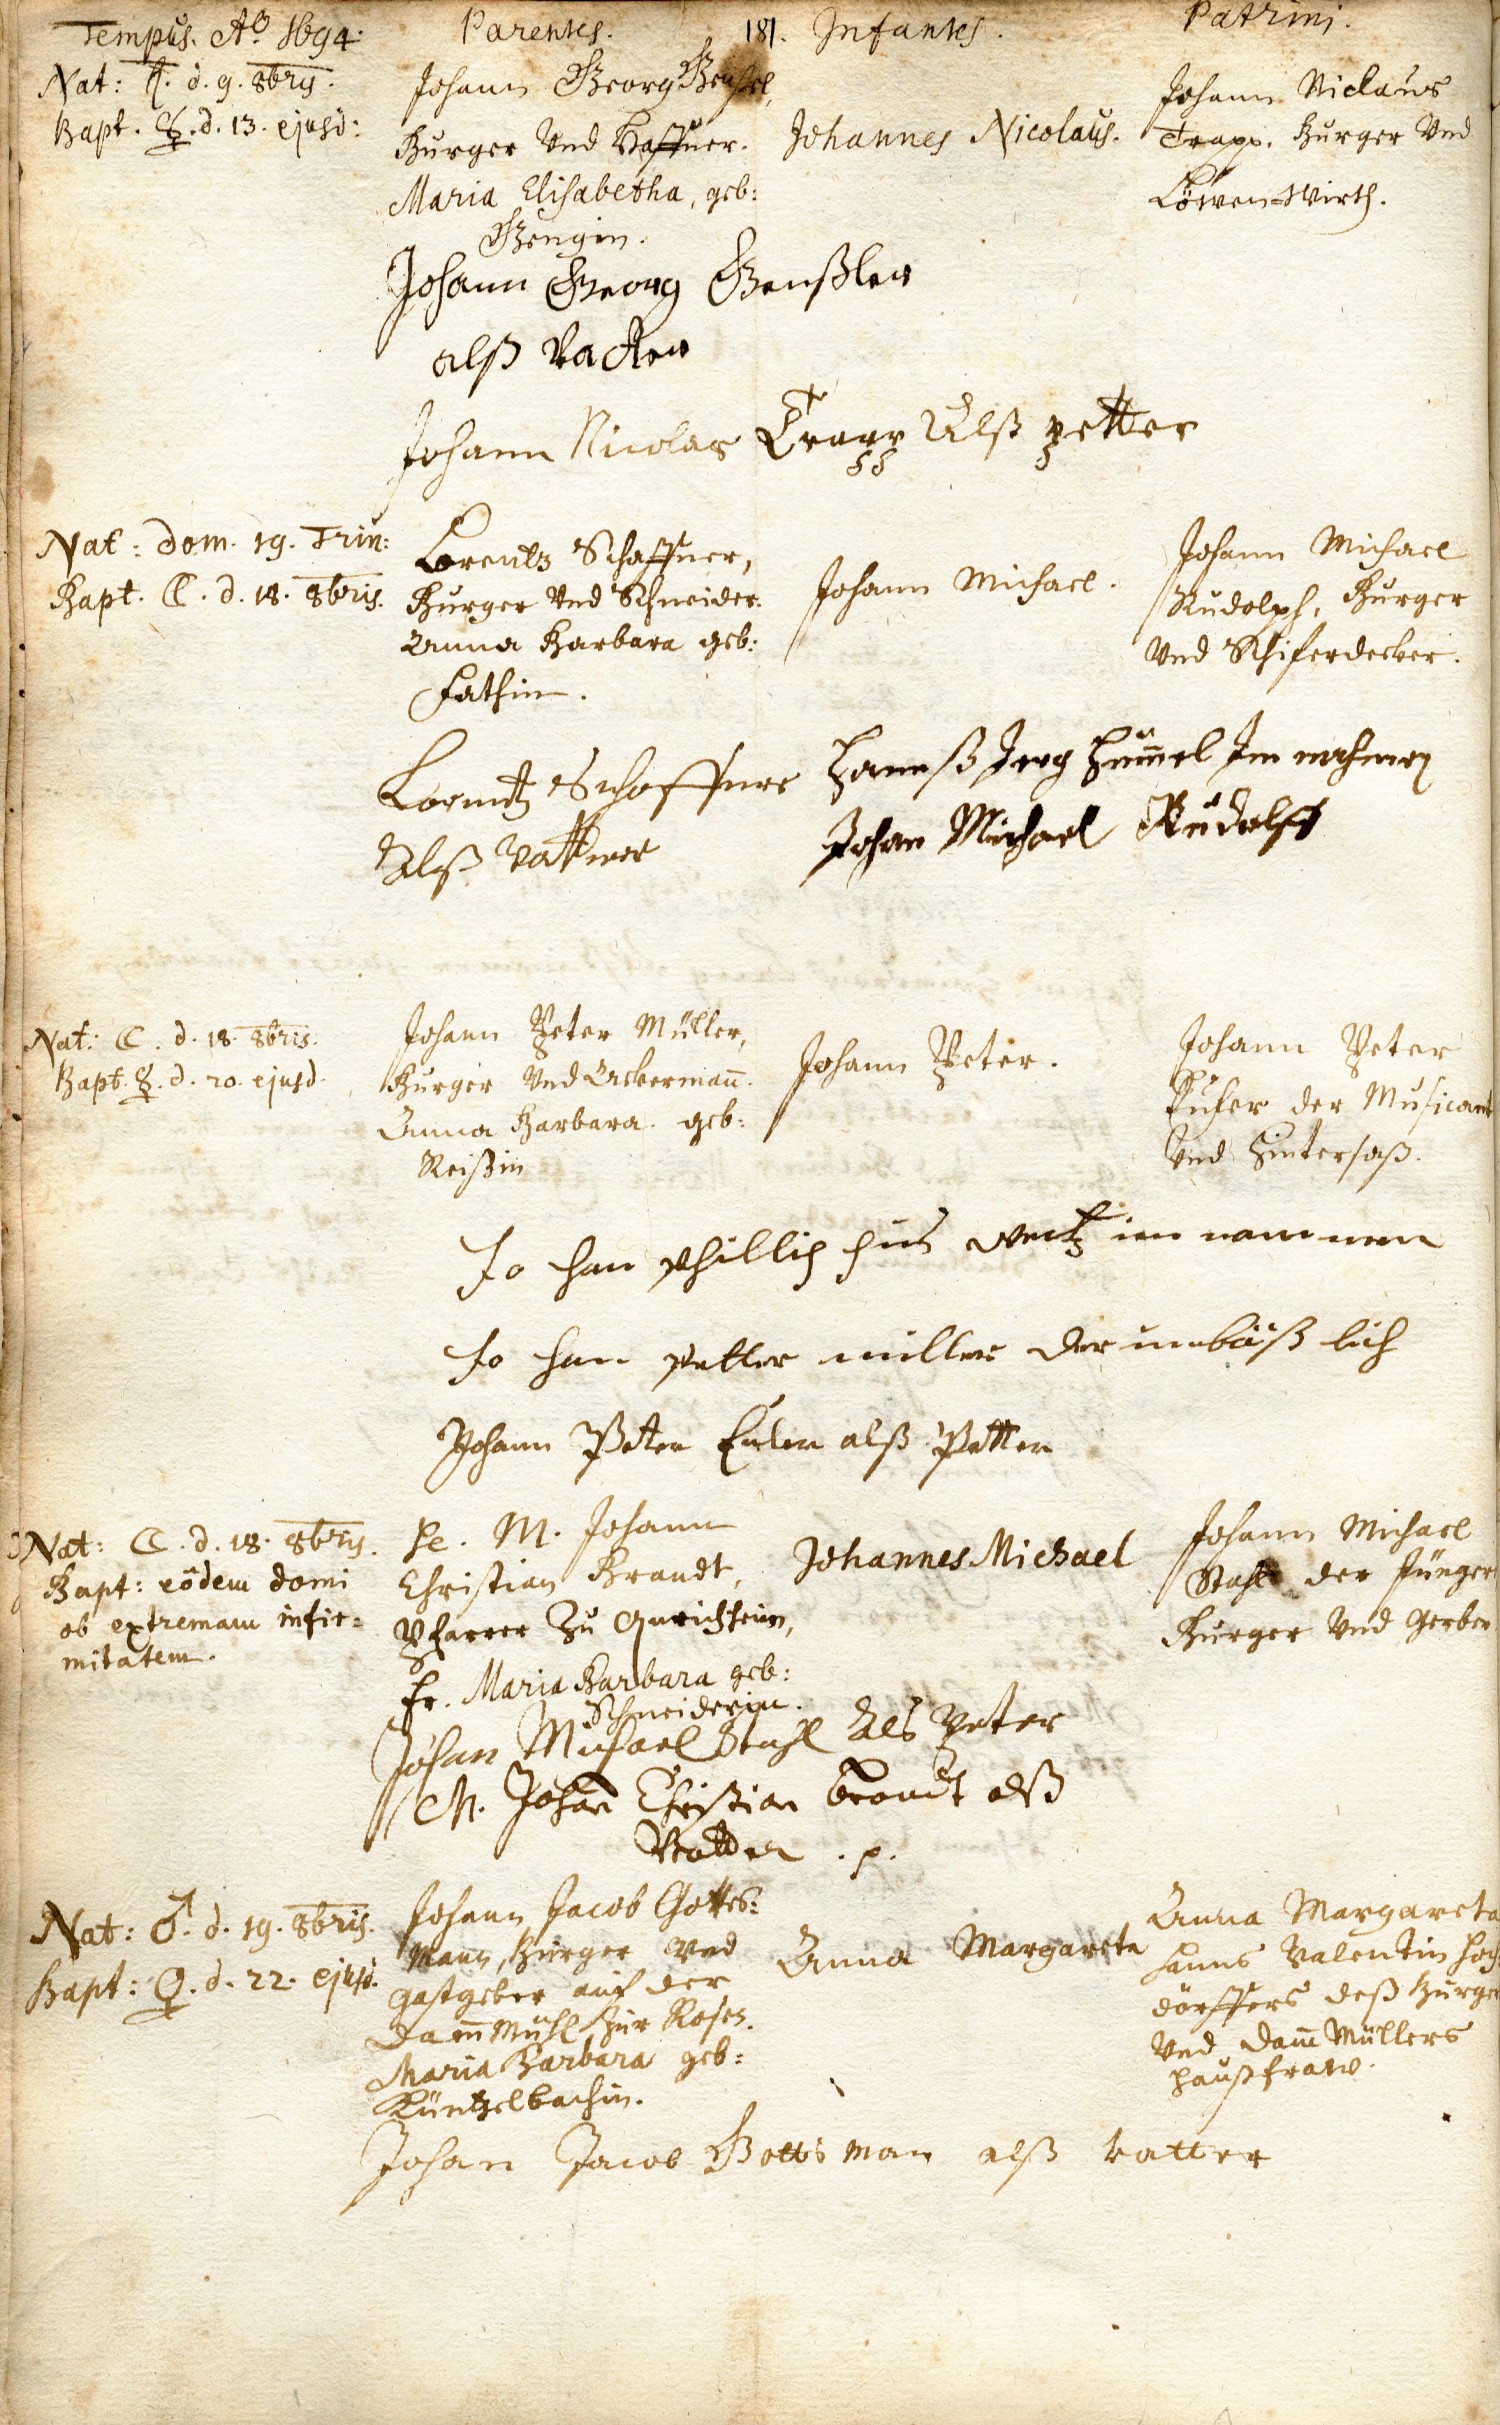 Tempus. Aº 1694.
Parentes.
181.
Infantes.
Patrini.
Nat: ♄. d. 9. 8bris.
Bapt. ☿. d. 13. ejusd:
Johann Georg
Burger Und Haffner.
Maria Elisabetha, geb:
Gengin.
Johannes Nicolaus.
Johann Niclaus
Trapp. Burger Und
Löwen-Wirth.
Johann Georg Genßler
alß Vatter
Johann Nicolas Trapp Alß petter
Nat: Dom. 19. Trin:
Bapt. ☾. d. 18. 8bris.
Lorentz Schaffner,
Burger Und Schneider.
Anna Barbara geb:
Fathin.
Johann Michael.
Johann Michael
Rudolph, Burger
Und Schiferdecker.
Lorentz Schaffner
Alß Vatter
Hannß Jerg Hummel Im nahmen
Johan Michael Rudolff
Nat: ☾. d. 18. 8bris.
Bapt. ☿. d. 20. ejusd.
Johann Peter Müller,
Burger Und Ackermann.
Anna Barbara. geb:
Reißin
Johann Peter.
Johann Peter
der Musicant
Und Hintersaß.
Jo han phillip weitz im nammen
Jo han petter miller der unbäß lich
Johann Peter Euler alß Petter
Nat: ☾. d. 18. 8bris.
Bapt: eôdem domi
ob extremam infir=
mitatem.
Hr. M. Johann
Christian Brandt,
Pfarrer Zu
Fr. Maria Barbara geb:
Schneiderin.
Johannes Michael
Johann Michael
Stahl der Jünger
Burger Und Gerber
Johan Michael Stahl Als peter
M. Johan Christian Brandt alß
Vatter .p.
Nat: ♂. d. 19. 8bris.
Bapt: ♀. d. 22. ejusd.
Johann Jacob Gottes=
Mann, Burger Und
Gastgeber auf der
Damm Mühl Zur Rosen.
Maria Barbara geb:
Küntzelbachin.
Anna Margareta
Anna Margareta
Hanns Valentin Hoch=
dörffers deß Burgers
Und Damm Müllers
haußfraw.
Johan Jacob Gottsman alß vatter